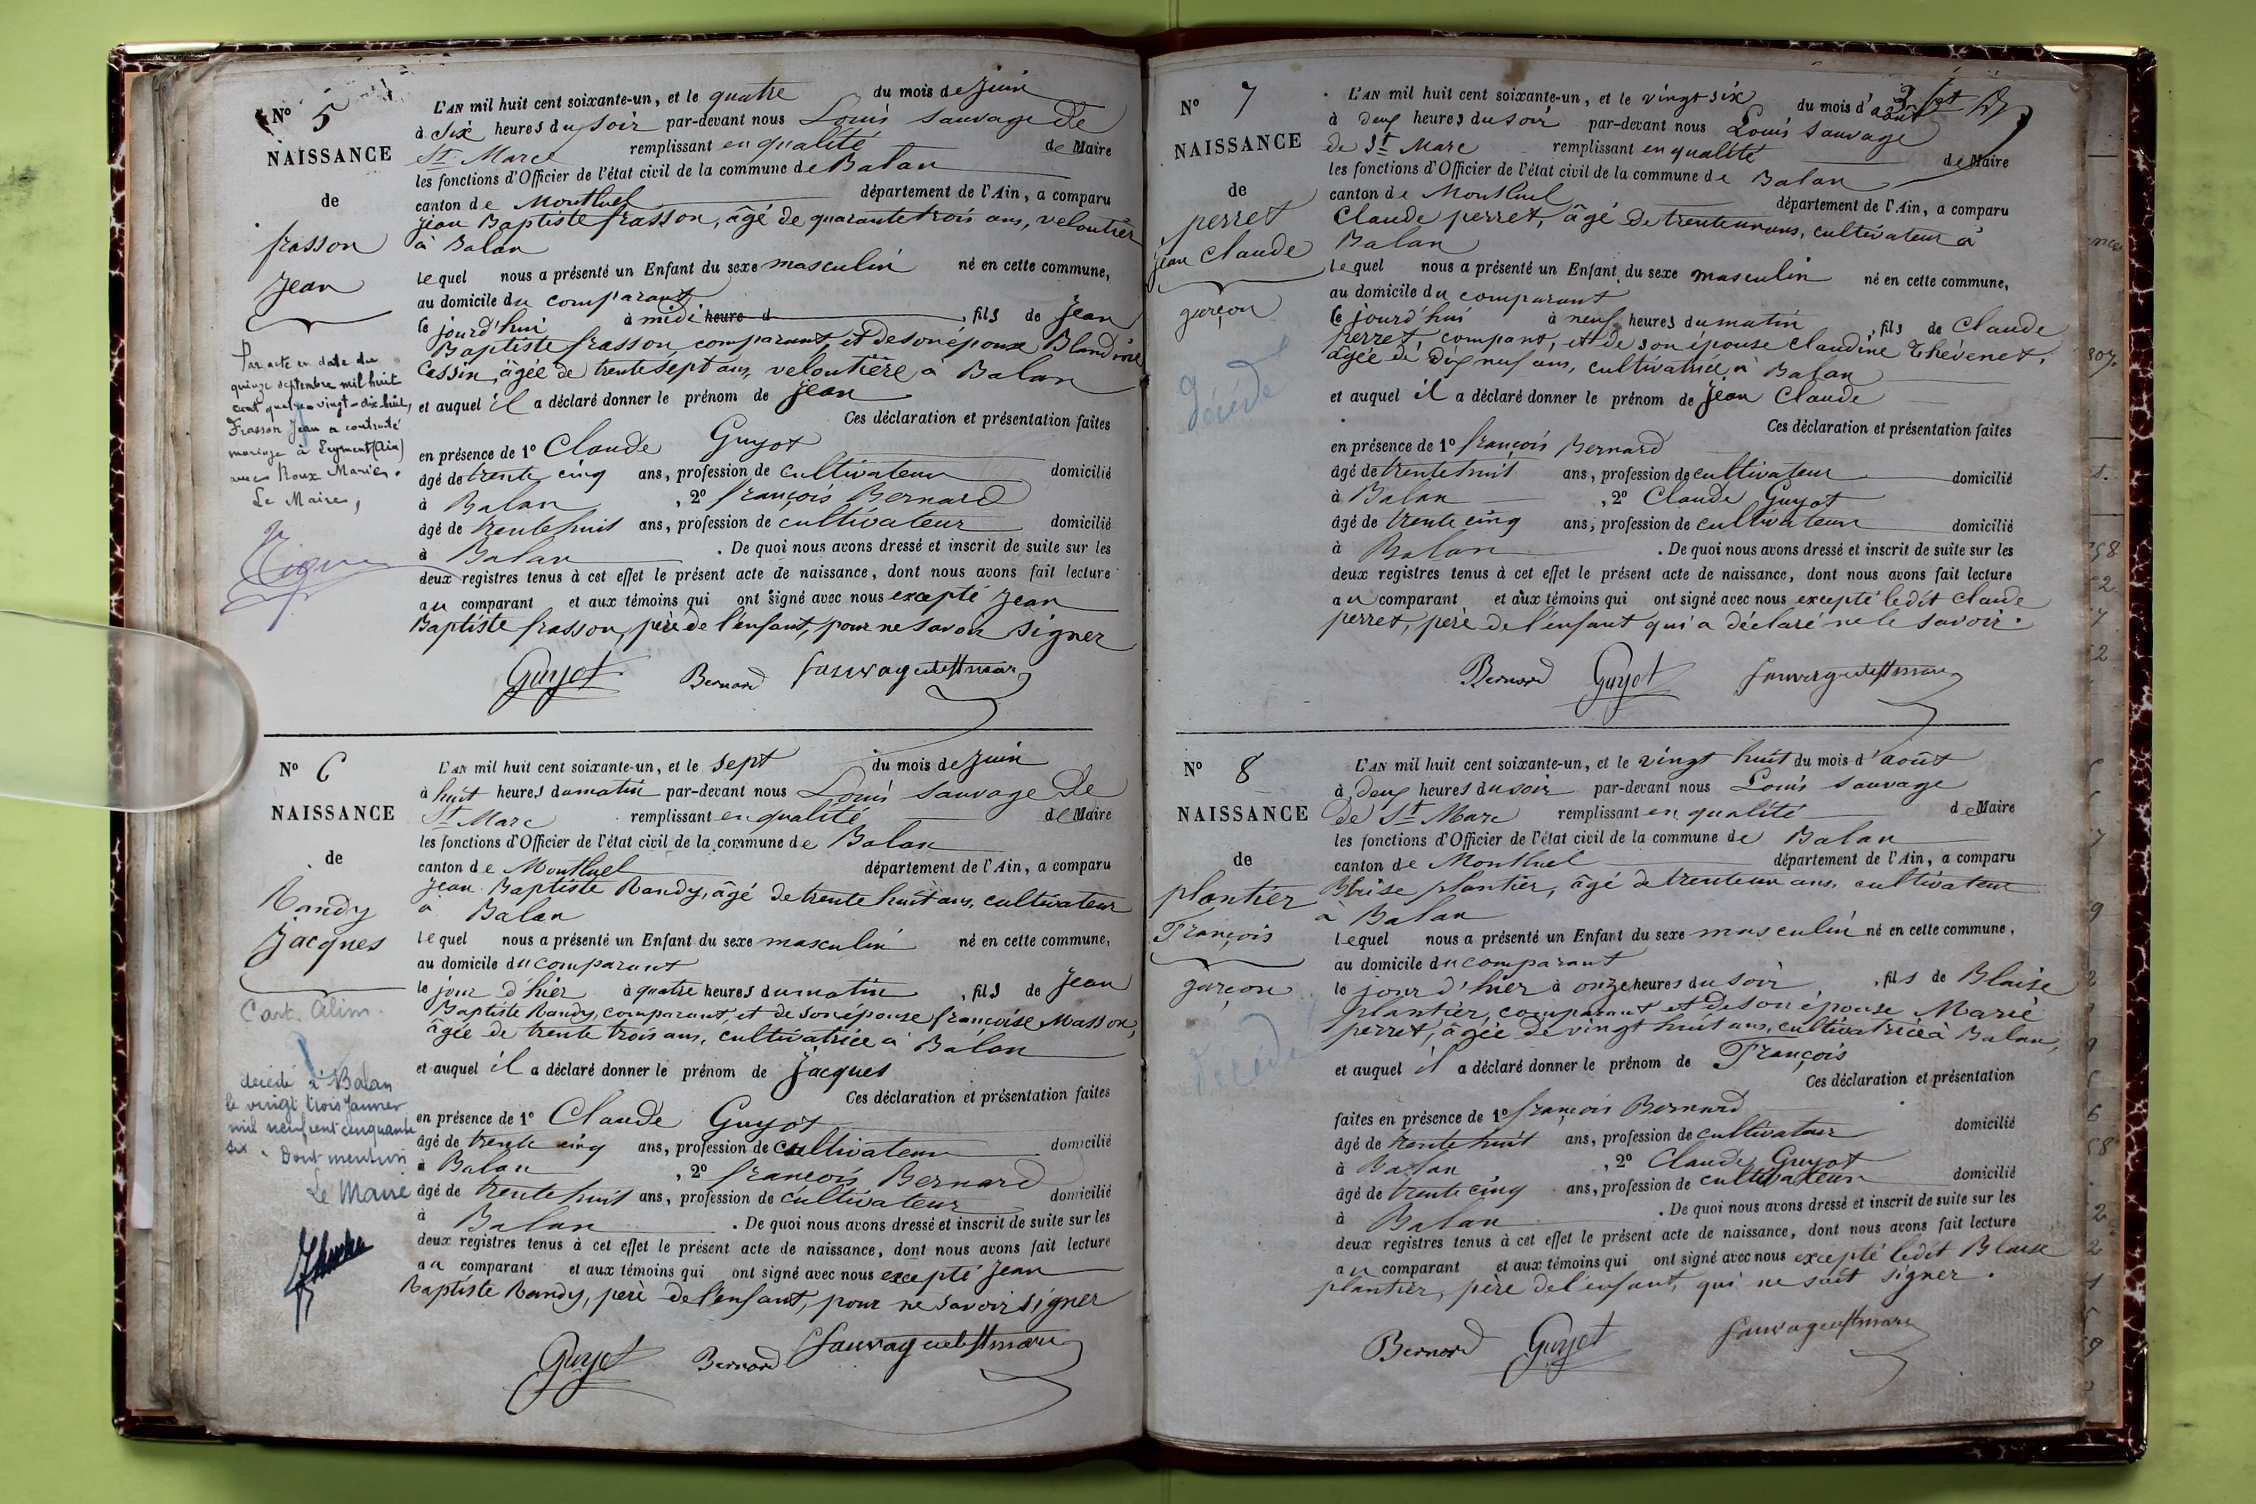 N° 5
NAISSANCE
de
frasson
Jean
Par acte en date du
quinze septembre mil huit
cent quatre-vingt-dix-huit,
Frasson Jean a contracté
mariage à Leyment (Ain)
avec Roux Marie.
Le Maire,
L'AN mil huit cent soixante-un, et le quatre du mois de Juin
à six heures du soir par-devant nous Louis Sauvage De
St Marc remplissant en qualité de Maire
les fonctions d'Officier de l'état civil de la commune de Balan
canton de Montluel département de l'Ain, a comparu
Jean Baptiste frasson, âgé de quarante trois ans, veloutier
à Balan
lequel nous a présenté un Enfant du sexe masculin né en cette commune,
au domicile du comparant
le jourd'hui à midi heure d , fils de Jean
Baptiste frasson, comparant, et de son épouse Blandine
Cassin, âgée de trente sept ans, veloutière à Balan
et auquel il a déclaré donner le prénom de Jean
Ces déclaration et présentation faites
en présence de 1° Claude Guyot
âgé de trente cinq ans, profession de cultivateur domicilié
à Balan , 2° françois Bernard
âgé de trente huit ans, profession de cultivateur domicilié
à Balan . De quoi nous avons dressé et inscrit de suite sur les
deux registres tenus à cet effet le présent acte de naissance, dont nous avons fait lecture
au comparant et aux témoins qui ont signé avec nous excepté Jean
Baptiste frasson, père de l'enfant, pour ne savoir signer
Guyot Bernard Sauvage de St marc
N° 6
NAISSANCE
de
Randy
Jacques
Cart. Alim.
décédé à Balan
le vingt trois Janvier
mil neuf cent cinquante
six. Dont mention
Le Maire
L'AN mil huit cent soixante-un, et le sept du mois de Juin
à huit heures du matin par-devant nous Louis Sauvage De
St Marc remplissant en qualité de Maire
les fonctions d'Officier de l'état civil de la commune de Balan
canton de Montluel département de l'Ain, a comparu
Jean Baptiste Randy, âgé de trente huit ans, cultivateur
à Balan
lequel nous a présenté un Enfant du sexe masculin né en cette commune,
au domicile du comparant
le jour d'hier à quatre heures du matin , fils de Jean
Baptiste Randy, comparant et de son épouse françoise Masson,
âgée de trente trois ans, cultivatrice à Balan
et auquel il a déclaré donner le prénom de Jacques
Ces déclaration et présentation faites
en présence de 1° Claude Guyot
âgé de trente cinq ans, profession de cultivateur domicilié
à Balan , 2° françois Bernard
âgé de trente huit ans, profession de cultivateur domicilié
à Balan . De quoi nous avons dressé et inscrit de suite sur les
deux registres tenus à cet effet le présent acte de naissance, dont nous avons fait lecture
au comparant et aux témoins qui ont signé avec nous excepté Jean
Baptiste Randy, père de l'enfant, pour ne savoir signer
Guyot Bernard Sauvage de St marc
N° 7
NAISSANCE
de
perret
jean Claude
garçon
Décédé
L'AN mil huit cent soixante-un, et le vingt-six du mois d'août
à deux heures du soir par-devant nous Louis Sauvage
de St Marc remplissant en qualité de Maire
les fonctions d'Officier de l'état civil de la commune de Balan
canton de Montluel département de l'Ain, a comparu
Claude perret, âgé de trente un ans, cultivateur à
Balan
lequel nous a présenté un Enfant du sexe masculin né en cette commune,
au domicile du comparant
le jourd'hui à neuf heures du matin , fils de Claude
perret, compant, et de son épouse Claudine Thévenet,
âgée de dix neuf ans, cultivatrice à Balan
et auquel il a déclaré donner le prénom de Jean Claude
Ces déclaration et présentation faites
en présence de 1° françois Bernard
âgé de trente huit ans, profession de cultivateur domicilié
à Balan , 2° Claude Guyot
âgé de trente cinq ans, profession de cultivateur domicilié
à Balan . De quoi nous avons dressé et inscrit de suite sur les
deux registres tenus à cet effet le présent acte de naissance, dont nous avons fait lecture
au comparant et aux témoins qui ont signé avec nous excepté ledit Claude
perret, père de l'enfant qui a déclaré ne le savoir.
Bernard Guyot Sauvage de St marc
N° 8
NAISSANCE
de
plantier
François
garçon
Décédé
L'AN mil huit cent soixante-un, et le vingt huit du mois d'août
à deux heures du soir par-devant nous Louis Sauvage
de St Marc remplissant en qualité de Maire
les fonctions d'Officier de l'état civil de la commune de Balan
canton de Montluel département de l'Ain, a comparu
Blaise plantier, âgé de trente un ans, cultivateur
à Balan
lequel nous a présenté un Enfant du sexe masculin né en cette commune,
au domicile du comparant
le jour d'hier à onze heures du soir , fils de Blaise
plantier, comparant et de son épouse Marie
perret, âgée de vingt huit ans, cultivatrice à Balan,
et auquel il a déclaré donner le prénom de François
Ces déclaration et présentation
faites en présence de 1° françois Bernard
âgé de trente huit ans, profession de cultivateur domicilié
à Balan , 2° Claude Guyot
âgé de trente cinq ans, profession de cultivateur domicilié
à Balan . De quoi nous avons dressé et inscrit de suite sur les
deux registres tenus à cet effet le présent acte de naissance, dont nous avons fait lecture
au comparant et aux témoins qui ont signé avec nous excepté ledit Blaise
plantier, père de l'enfant, qui ne sait signer.
Bernard Guyot Sauvage de St marc